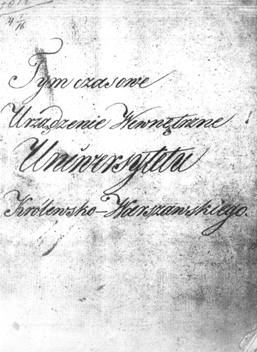 Tymczasowe
Urządzenie Wewnętrzne
Uniwersytetu
Królewsko-Warszawskiego.